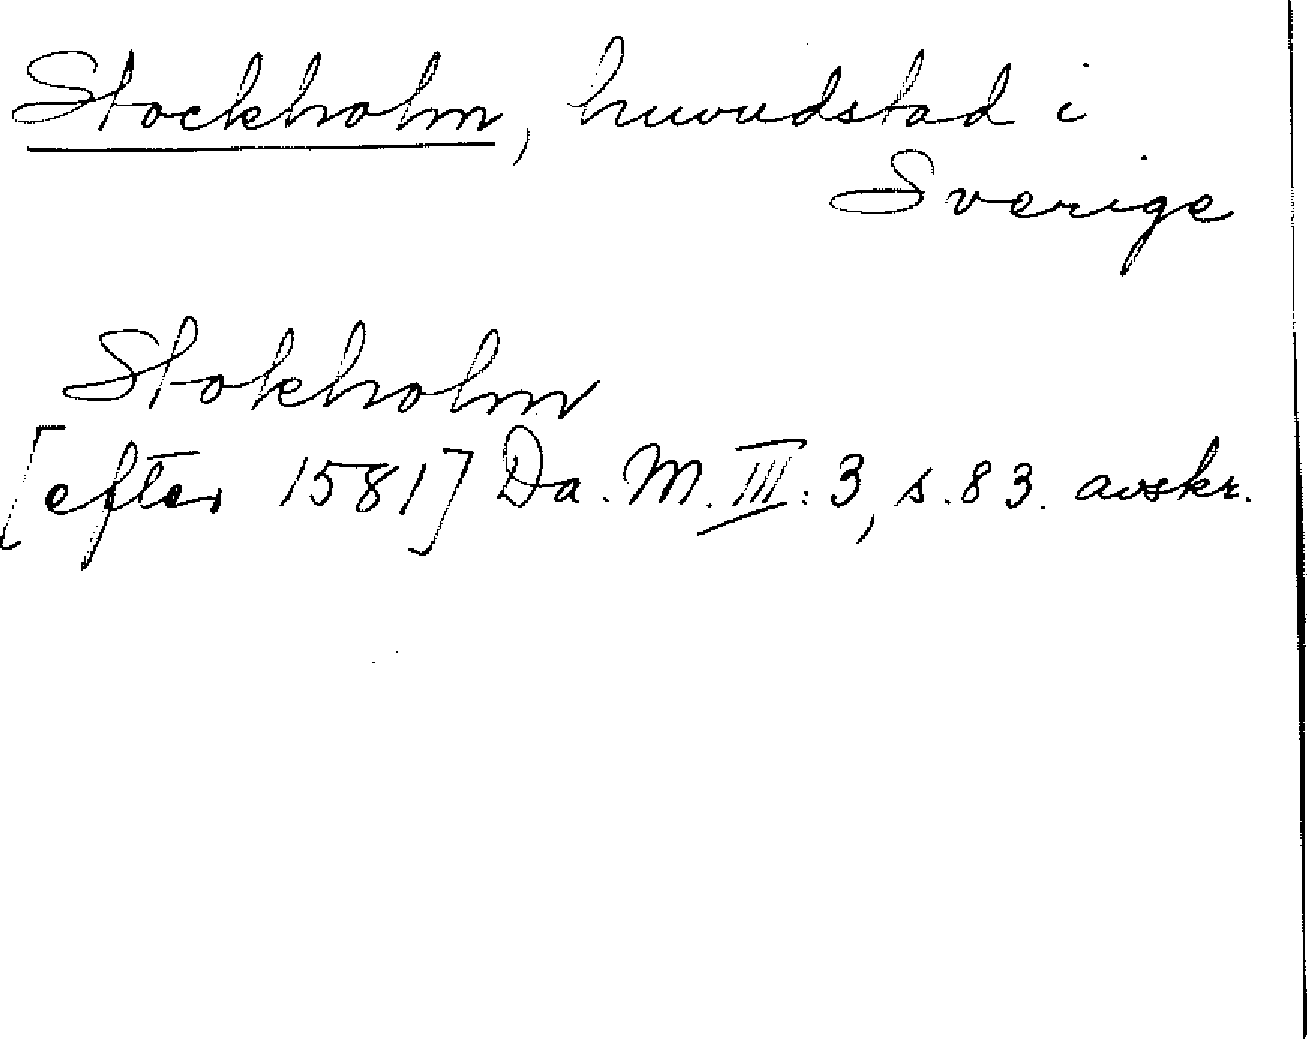 Stockholm, huvudstad i
Sverige
Stokholm
[efter 1581] Da. M. III: 3, s. 83. avskr.